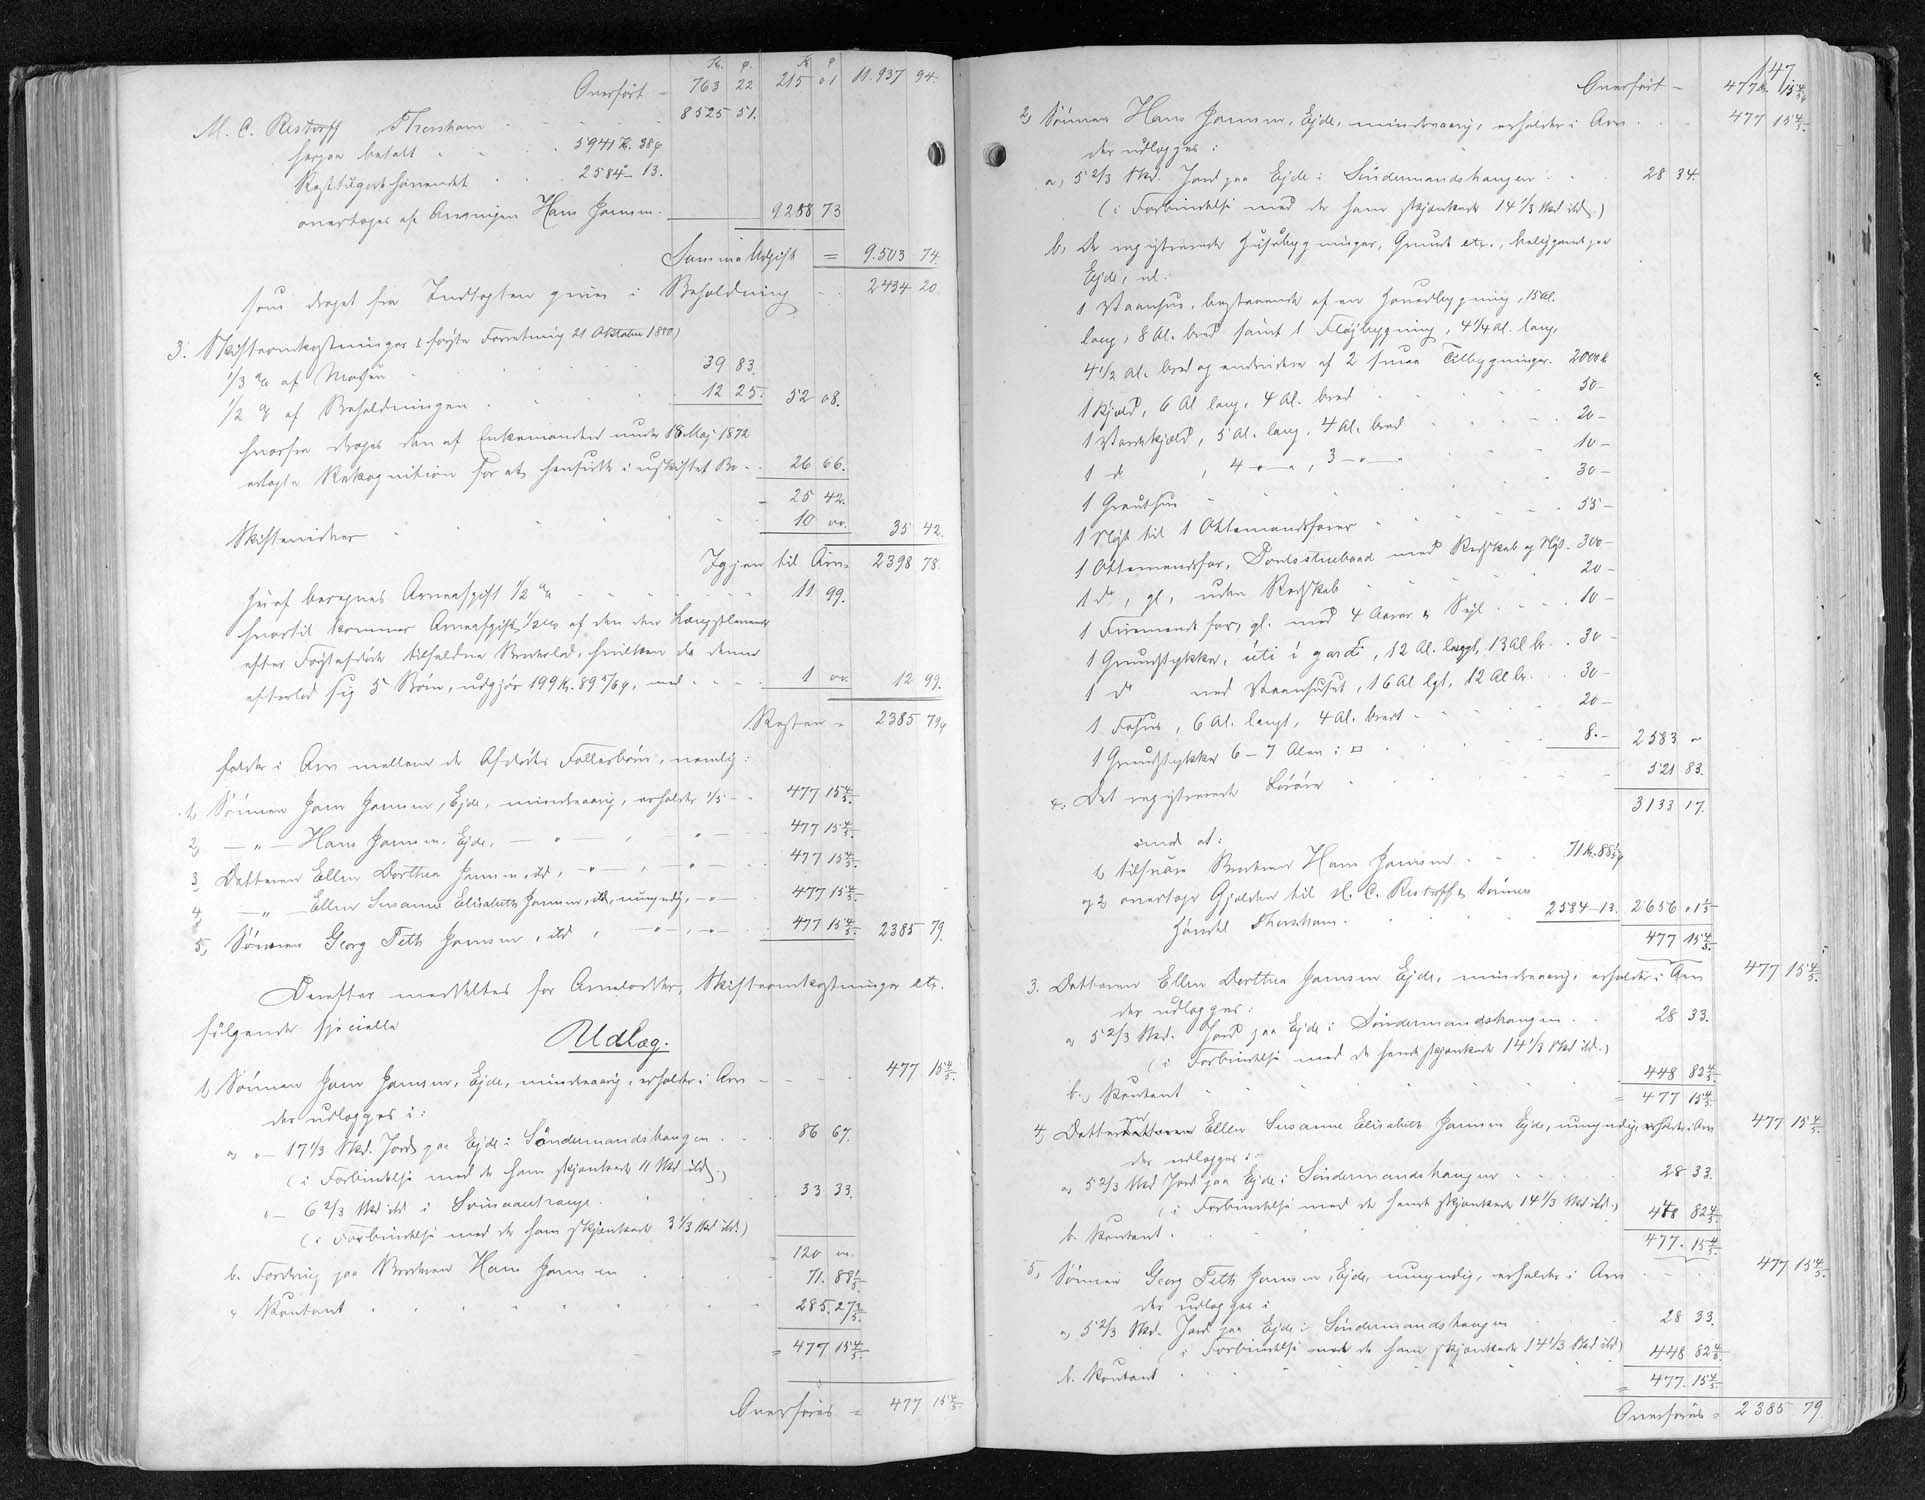 Kr. ø. Kr ø
Overført – 763 22 215 01 11.937 94.
M. C. Restorff Thorshavn 8525 51.
herpaa betalt 5941 K. 38 ø
Resttilgodehavendet 2584 – 13.
overtages af Arvingen Hans Joensen. 9288 73
Summa Udgift = 9.503 74.
som draget fra Indtægten giver i Beholdning 2434 20.
3. Skifteomkostninger (første Forretning 21 Oktober 1880)
1/3 % af Massen 39 83.
1/2 % af Beholdningen 12 25. 52 08.
hvorfra drages den af Enkemanden under 18 Maj 1872
erlagte Rekognition for at hensidde i uskiftet Bo 26 66.
25 42.
10 "". 35 42.
Igjen til Arv = 2398 78.
Heraf beregnes Arveafgift 1/2 % 11 99.
hvortil kommer Arveafgift 1/2 % af den den
efter tilfaldne Broderlod, hvilken da denne
efterlod sig 5 Børn, udgjør 199 K. 89 ø, med 1 "". 12 99.
Resten = 2385 79 ø
falder i Arv mellem de Afdødes Fællesbørn, nemlig:
1, Sønnen Joen Joensen, Ejde, mindreaarig, erholder 1/5 477 15 4/5.
2, – " – Hans Joensen, Ejde, – " – , – " – 477 15 4/5.
3, Datteren Ellen Dorthea Joensen, ibd, – " – , – " – 477 15 4/5.
4, – " – Ellen Susanne Elisabeth Joensen, ibd, umyndig, – " – 477 15 4/5.
5, Sønnen Georg Feth Joensen, ibd, – " – , – " – 477 15 4/5. 2385 79.
Derefter meddeltes for Arvelodder, Skifteomkostninger etc.
følgende specielle
Udlæg.
1, Sønnen Joen Joensen, Ejde, mindreaarig, erholder i Arv 477 15 4/5.
der udlægges i:
a, " – 17 1/3 Skd. Jord paa Ejde i Söndermandshaugen 86 67.
(i Forbindelse med de ham skjænkede 11 Skd ibd.)
" – 6 2/3 Skd ibd i 33 33.
(i Forbindelse med de ham skjænkede 3 1/3 Skd ibd.)
= 120 "".
b. Fordring paa Broderen Hans Joensen 71. 88 1/5
" Kontant 285. 27 3/5.
= 477 15 4/5.
Overføres = 477 15 4/5.
147
Overført – 477 K. 15 4/5 ø
2, Sønnen Hans Joensen, Ejde, mindreaarig, erholder i Arv 477 15 4/5.
der udlægges:
a, 5 2/3 Skd. Jord paa Ejde i Söndermandshaugen 28 34.
(i Forbindelse med de ham skjænkede 14 1/3 Skd ibd.)
b, De registrerede Husbygninger, Grunde etc., beliggende paa
Ejde, nl.
1 Vaanhus, bestaaende af en Hovedbygning, 15 Al.
lang, 8 Al. bred samt 1 Fløjbygning, 4 1/4 Al. lang,
4 1/2 Al. bred og endvidere af 2 smaa Tilbygninger. 2000 K
1 Kjæld, 6 Al lang, 4 Al. bred 50 –
1 Vardekjæld, 5 Al. lang, 4 Al. bred 20 –
1 do , 4 – " – , 3 – " – 10 –
1 Gruthus 30 –
1 Nøst til 1 Ottemandsfarer 55 –
1 Ottemandsfar, med Redskab og Nøst. 300 –
1 do, gl, uden Redskab 20 –
1 Firemands far, gl. med 4 Aarer & Sejl 10 –
1 Grundstykke, úti í garði, 12 Al. langt, 13 Al br. 30 –
1 do ved Vaanhuset, 16 Al lgt, 12 Al br. 30 –
1 Fæhus, 6 Al. langt, 4 Al. bredt 20 –
1 Grundstykke 6 – 7 Alen i □ 8. – 2583 "
c, Det registrerede Løsøre 521 83.
3133 17.
imod at:
1, tilsvare Broderen Joensen 71 K. 88 1/5 ø
og 2, overtage Gjælden til M. C. Restorff & Sønners
Handel Thorshavn. 2584 – 13. 2656 01 1/5
477 15 4/5.
3. Datteren Ellen Dorthea Joensen Ejde, mindreaarig, erholder i Arv 477 15 4/5.
der udlægges:
a, 5 2/3 Skd. Jord paa Ejde i Söndermandshaugen 28 33.
(i Forbindelse med de hende skjænkede 14 1/3 Skd ibd.)
b, Kontant 448 82 4/5.
= 477 15 4/5.
4, Datteren Ellen Susanne Elisabeth Joensen Ejde, umyndig, erholder i Arv 477 15 4/5.
der udlægges:
a, 5 2/3 Skd Jord paa Ejde i Söndermandshaugen 28 33.
(i Forbindelse med de hende skjænkede 14 1/3 Skd ibd.)
b. Kontant 448 82 4/5.
477. 15 4/5.
5, Sønnen Georg Feth Joensen, Ejde, umyndig, erholder i Arv 477 15 4/5.
der udlægges i
a, 5 2/3 Skd. Jord paa Ejde i Söndermandshaugen 28 33.
(i Forbindelse med de ham skjænkede 14 1/3 Skd ibd)
b. Kontant 448 82 4/5.
= 477. 15 4/5.
Overføres = 2385 79.